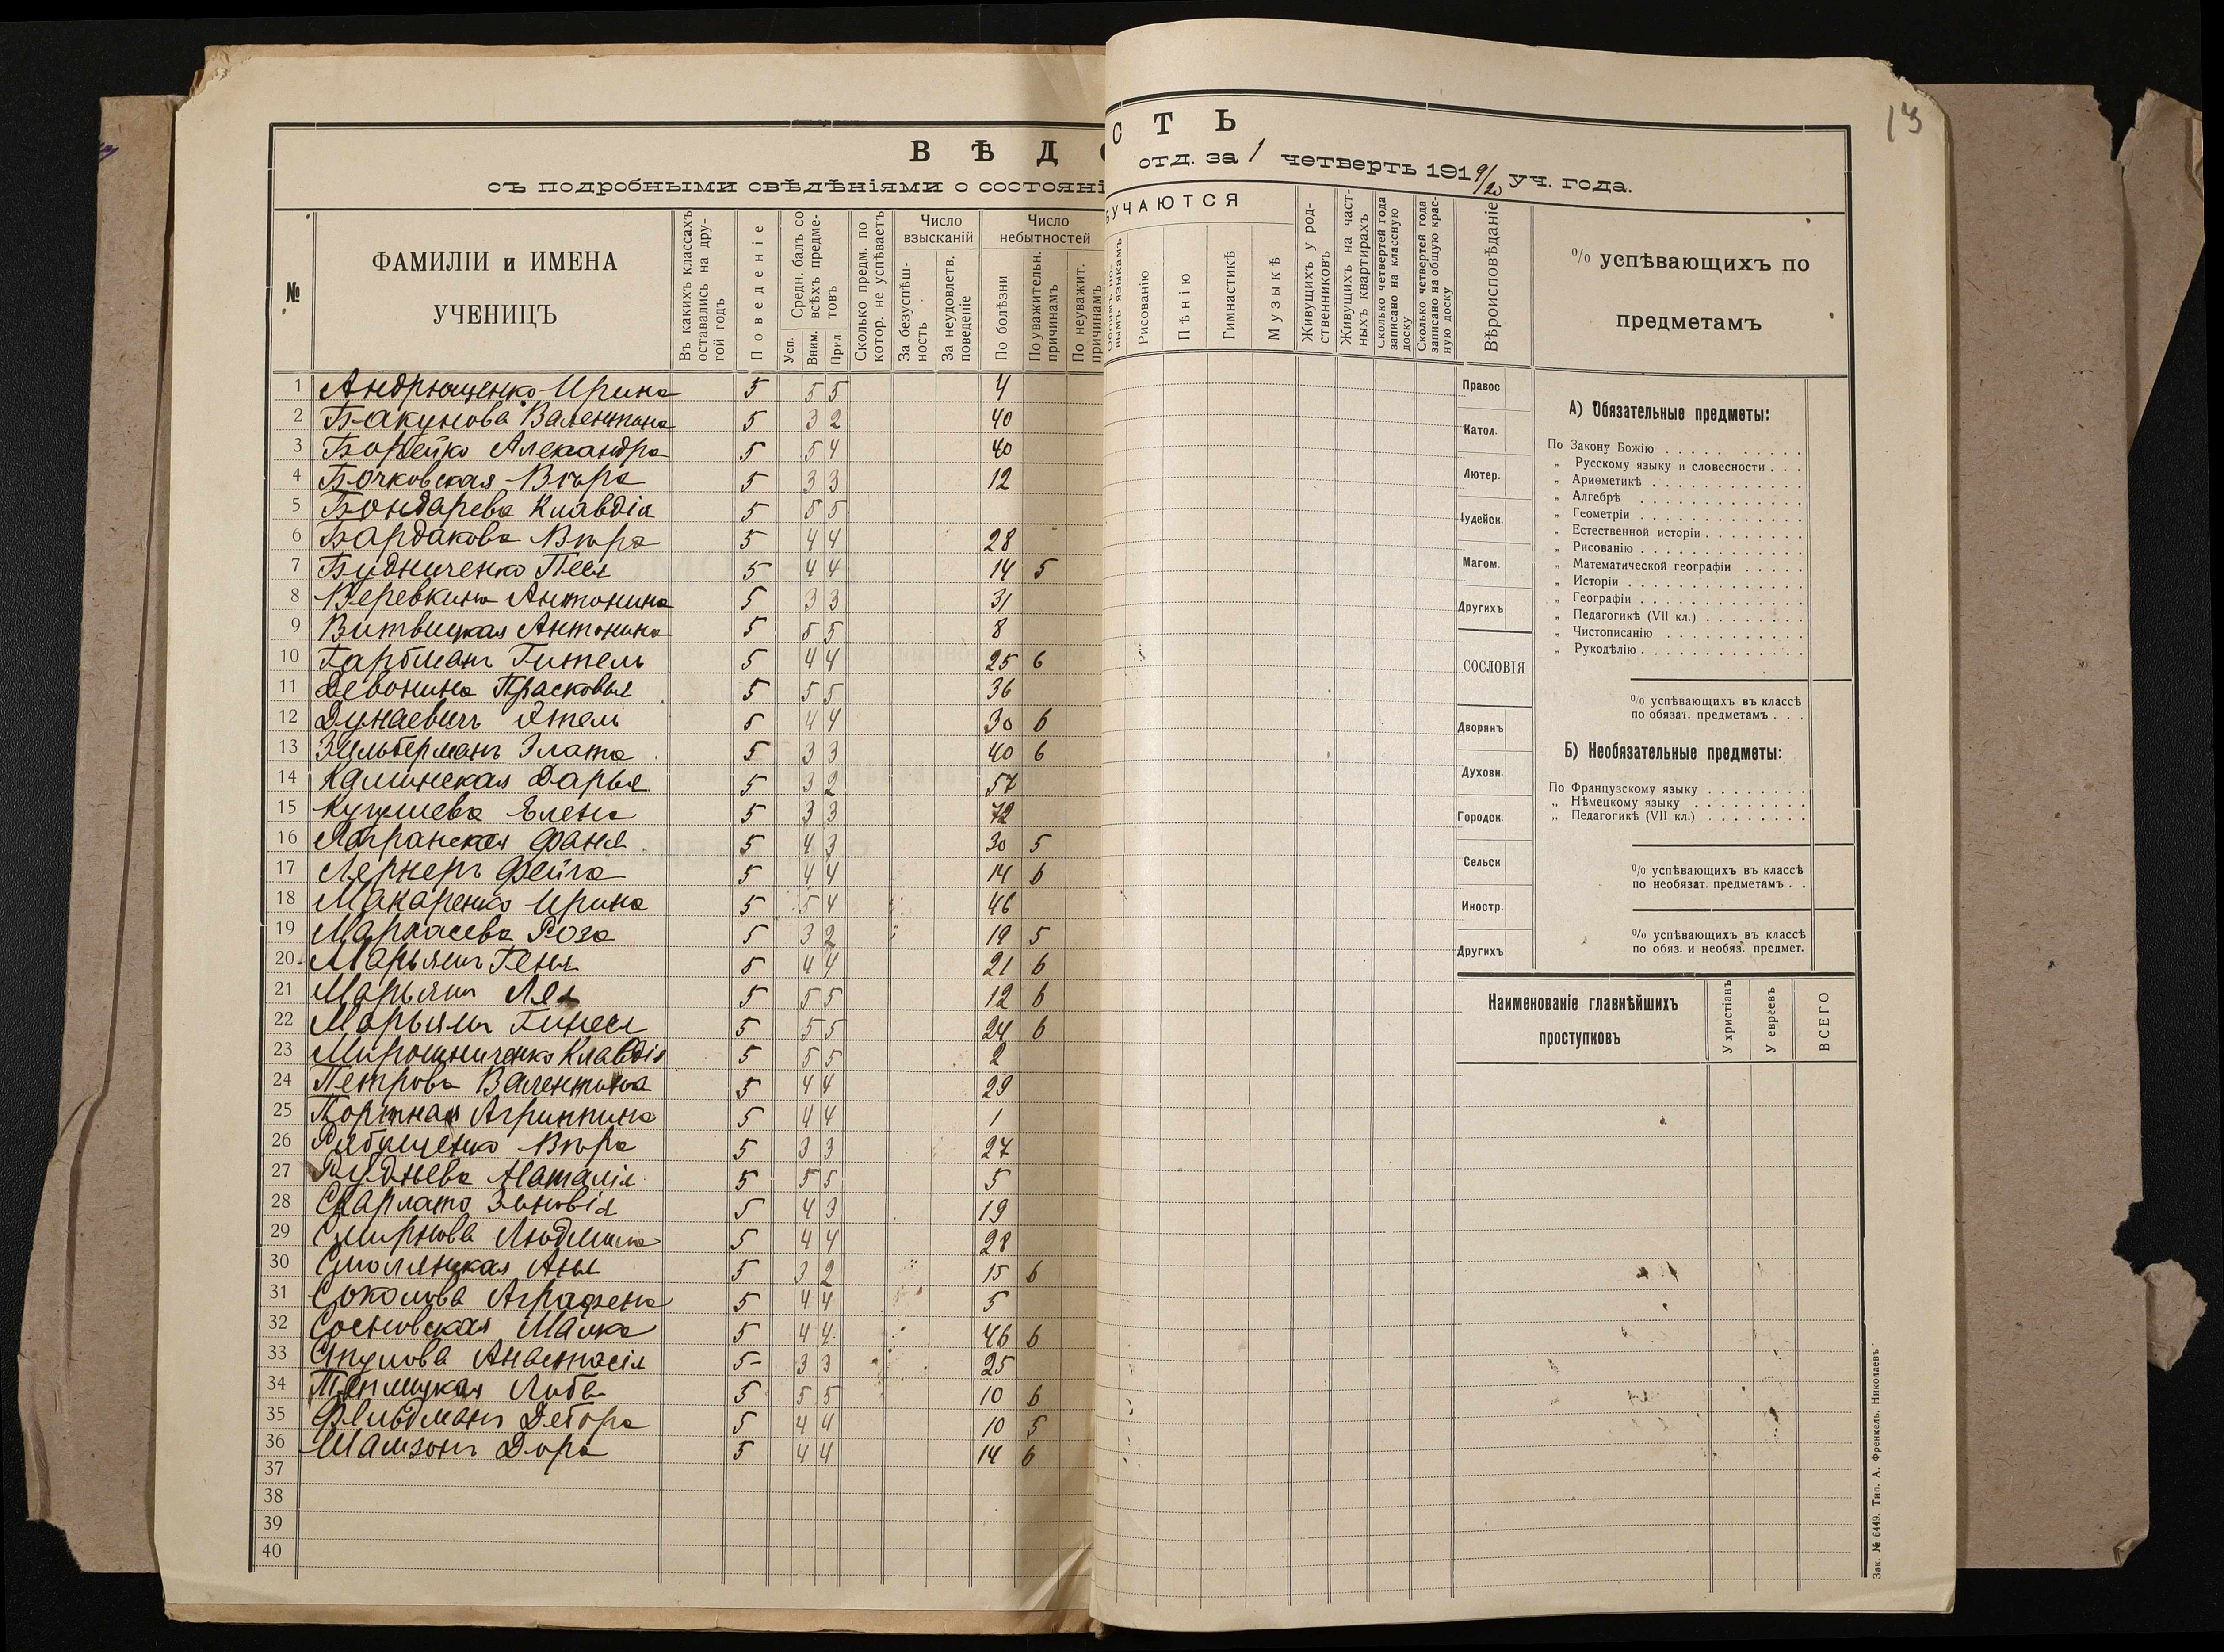 13
ВѢДО
СТЬ
съ подробными свѣдѣніями о состояні
отд. за 1 четверть 1919/20 уч. года.
№
ФАМИЛІИ и ИМЕНА
УЧЕНИЦЪ
Въ какихъ классахъ оставались на другой годъ
Поведеніе
Средн. балъ со всѣхъ предметовъ
Усп.
Вним.
Прил
Сколько предм. по котор. не успѣваетъ
Число взысканій
За безуспѣшность
За неудовлетв. поведеніе
Число небытностей
По болѣзни
По уважительн. причинамъ
По неуважит. причинамъ
БУЧАЮТСЯ
вымъ языкамъ
Рисованію
Пѣнію
Гимнастикѣ
Музыкѣ
Живущихъ у родственниковъ
Живущихъ на частныхъ квартирахъ
Сколько четвертей года записано на классную доску
Сколько четвертей года записано на общую красную доску
Вѣроисповѣданіе
% успѣвающихъ по
предметамъ
1 Андрющенко Ирина 5 5 5 4
2 Бакунова Валентина 5 3 2 40
3 Борейко Александра 5 5 4 40
4 Бочковская Вѣра 5 3 3 12
5 Бондарева Клавдія 5 5 5
6 Бардакова Вѣра 5 4 4 28
7 Будниченко Песя 5 4 4 14 5
8 Веревкина Антонина 5 3 3 31
9 Витвицкая Антонина 5 5 5 8
10 Гарбманъ Гитель 5 4 4 25 6
11 Девонина Прасковья 5 5 5 36
12 Дунаевичъ Этель 5 4 4 30 6
13 Зильберманъ Злата 5 3 3 40 6
14 Калинская Дарья 5 3 2 57
15 Елена 5 3 3 72
16 Фаня 5 4 3 30 5
17 Лернеръ Фейга 5 4 4 14 6
18 Макаренко Ирина 5 5 4 46
19 Роза 5 3 2 19 5
20 Марьяшъ Геня 5 4 4 21 6
21 Марьяшъ Лея 5 5 5 12 6
22 Марьяшъ 5 5 5 24 6
23 Мирошниченко Клавдія 5 5 5 2
24 Петрова Валентина 5 4 4 29
25 Портная Агриппина 5 4 4 1
26 Вѣра 5 3 3 27
27 Руднева Наталія 5 5 5 5
28 Скарлато Зиновія 5 4 3 19
29 Смирнова Людмила 5 4 4 28
30 Смолянская Аня 5 3 2 15 6
31 Соколова Аграфена 5 4 4 5
32 Сосновская Малка 5 4 4 46 6
33 Анастасія 5 3 3 25
34 Теплицкая Люба 5 5 5 10 6
35 Фельдманъ Дебора 5 4 4 10 5
36 Шамзонъ Дора 5 4 4 14 6
37
38
39
40
Правос
Катол.
Лютер.
Іудейск.
Магом.
Другихъ
СОСЛОВІЯ
Дворянъ
Духовн.
Городск.
Сельск
Иностр.
Другихъ
А) Обязательные предметы:
По Закону Божію
„ Русскому языку и словесности
„ Ариѳметикѣ
„ Алгебрѣ
„ Геометріи
„ Естественной исторіи
„ Рисованію
„ Математической географіи
„ Исторіи
„ Географіи
„ Педагогикѣ (VII кл.)
„ Чистописанію
„ Рукодѣлію
% успѣвающихъ въ классѣ
по обязат. предметамъ
Б) Необязательные предметы:
По Французскому языку
„ Нѣмецкому языку
„ Педагогикѣ (VII кл.)
% успѣвающихъ въ классѣ
по необязат. предметамъ
% успѣвающихъ въ классѣ
по обяз. и необяз. предмет.
Наименованіе главнѣйшихъ
проступковъ
У христіанъ
У евреевъ
ВСЕГО
Зак. № 6449. Тип. А. Френкель. Николаевъ